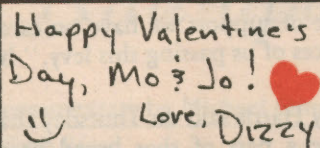 Happy Valentine's
Day, Mo & Jo!
Love, Dizzy